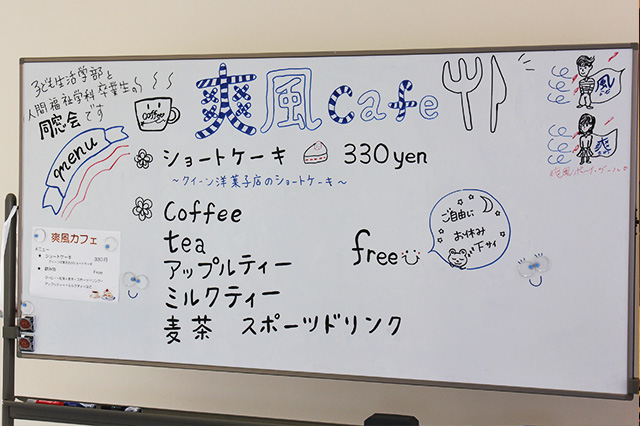 子ども生活学部と
人間福祉学科卒業生の
同窓会です
coffee
爽風Cafe
menu
ショートケーキ 330yen
～クイーン洋菓子店のショートケーキ～
Coffee
tea
アップルティー
ミルクティー
麦茶 スポーツドリンク
free
ご自由に
お休み
下サイ
風
爽
爽風カフェ
メニュー
ショートケーキ 330円
飲み物 Free